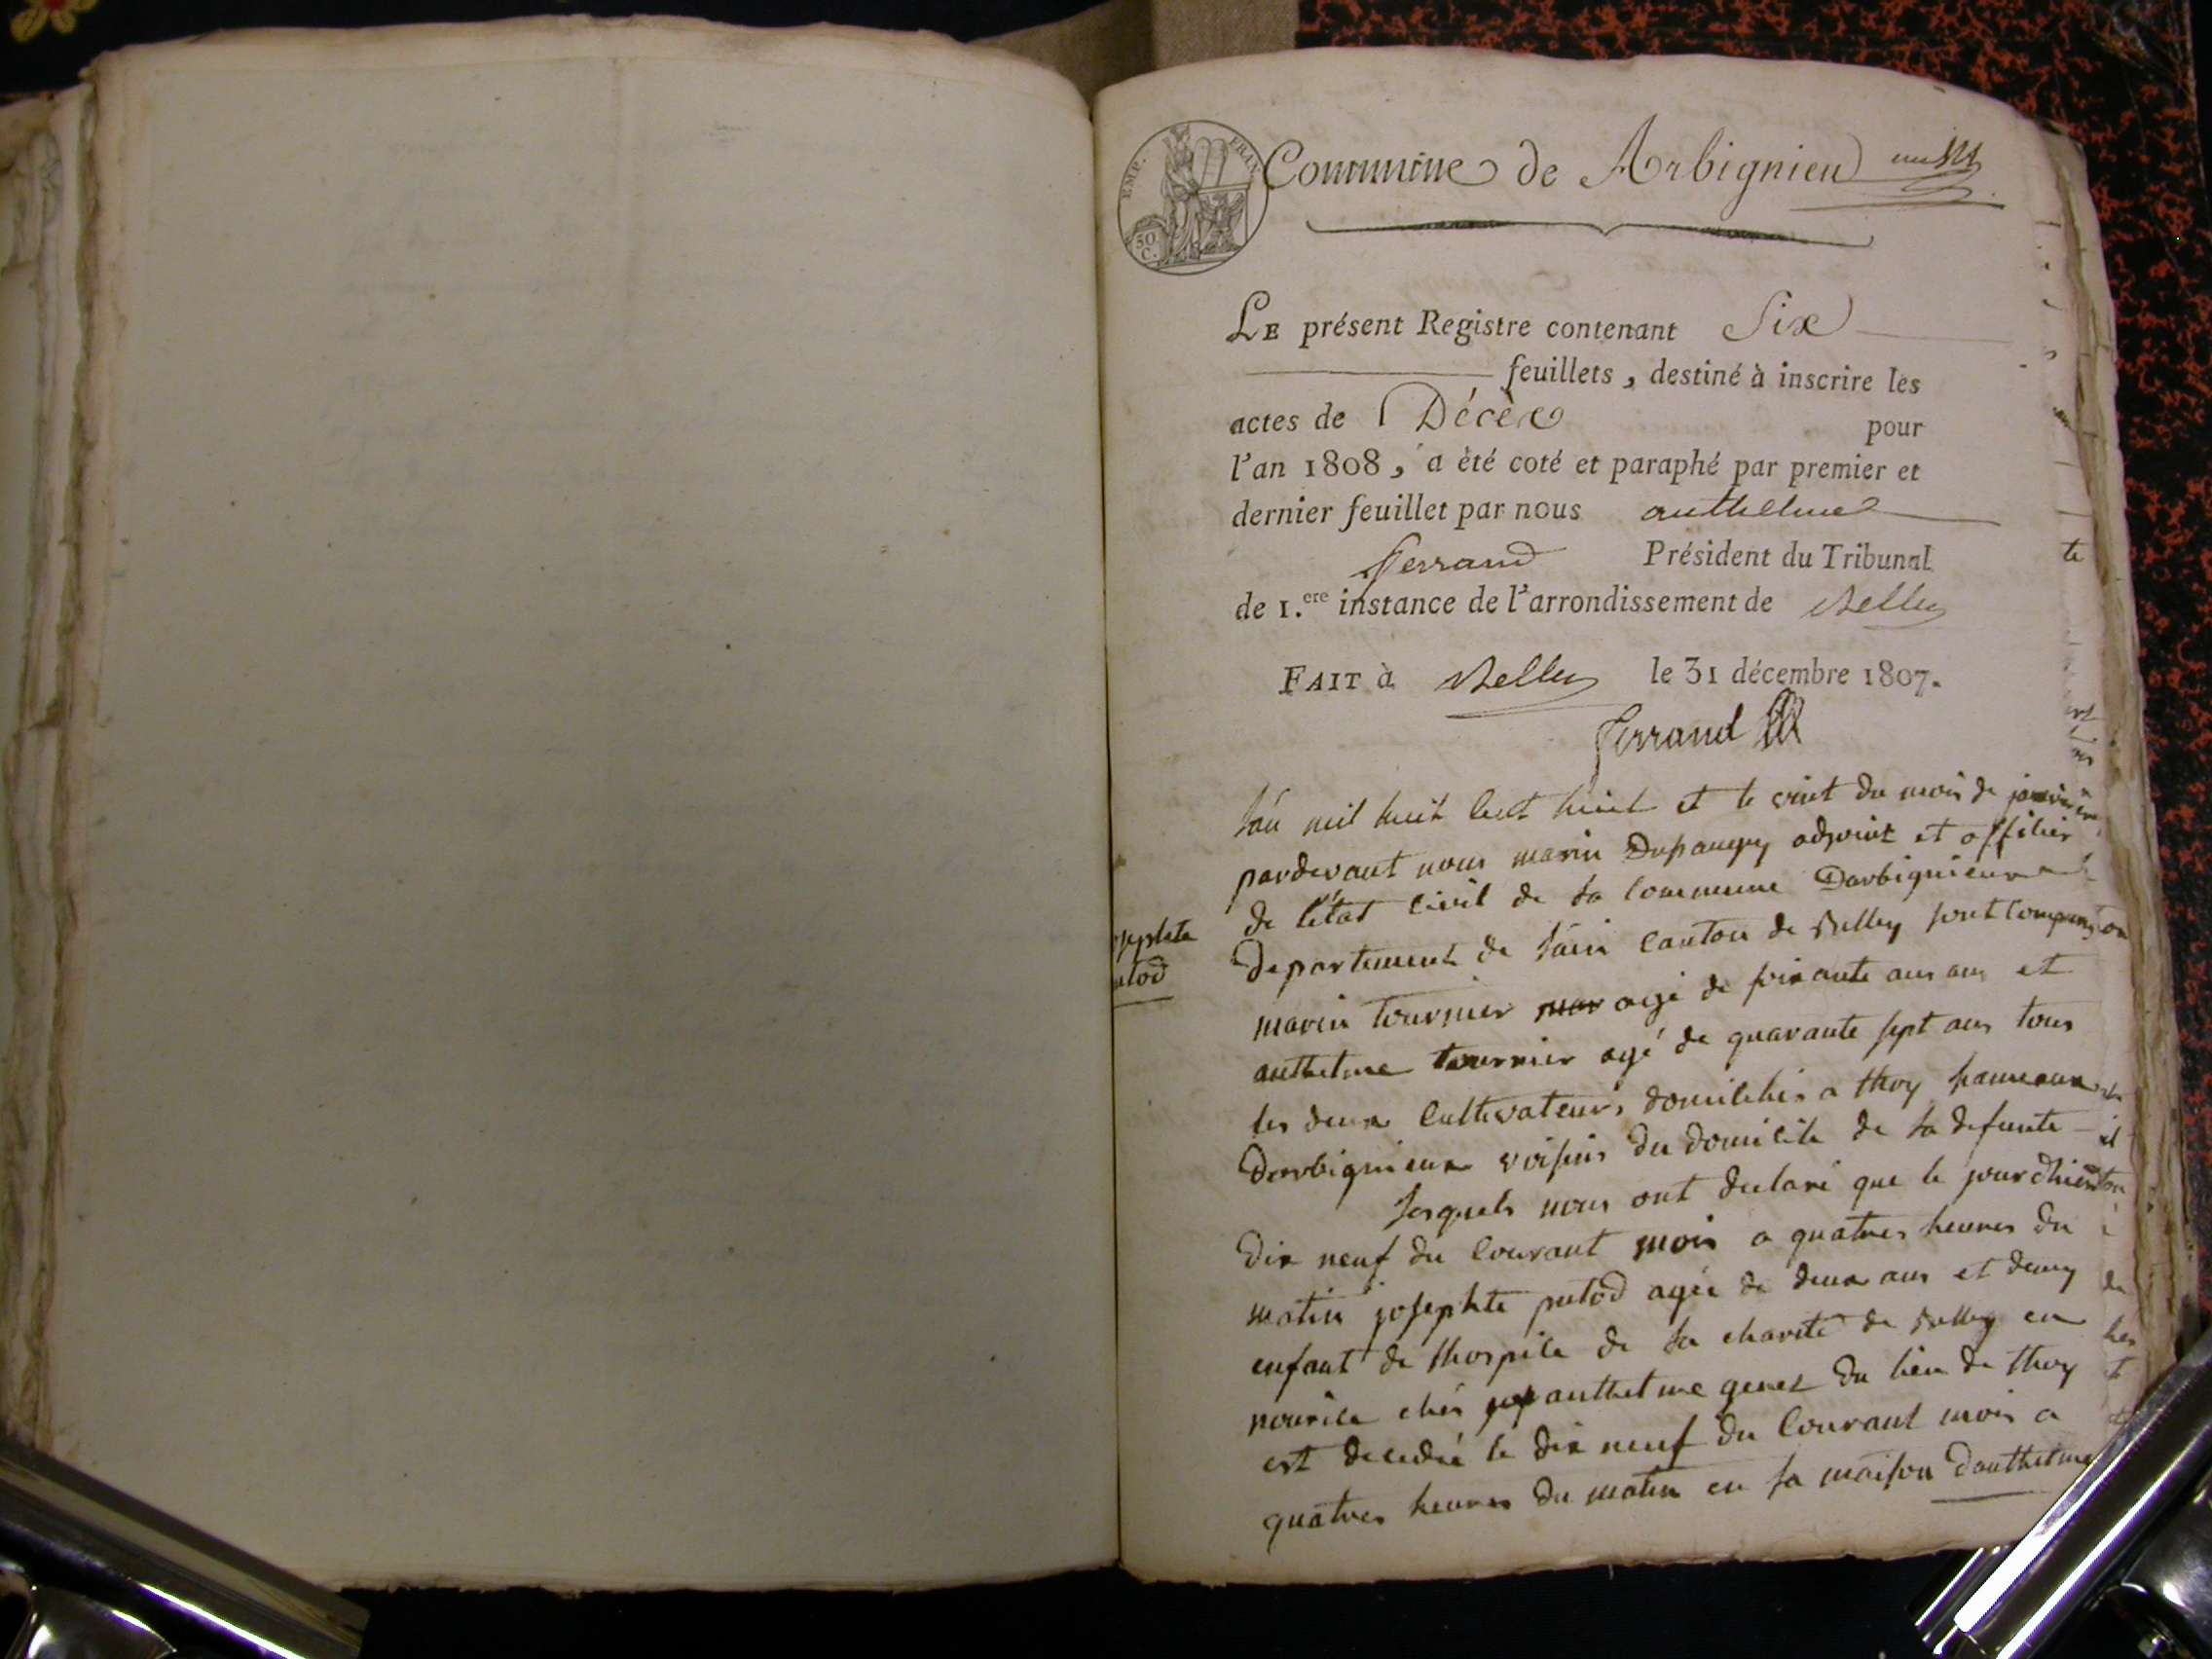 EMP. FRAN.
50 C.
Commune de Arbignieu
Le présent Registre contenant Six
feuillets, destiné à inscrire les
actes de Décès pour
l'an 1808, a èté coté et paraphé par premier et
dernier feuillet par nous anthelme
ferrand Président du Tribunal
de 1.ere instance de l'arrondissement de Belley
FAIT à Belley le 31 décembre 1807.
ferrand
Lan mil huit cent huit et le vint du mois de janvier
pardevant nous marin Dupaugey adjoint et officier
de létat civil de la commune Darbignieux
Departement de lain canton de Belley sont comparus
josephte
putod
marin tournier agé de soixante ans et
anthelme tournier agé de quarante sept ans tous
les deux cultivateurs domiciliés a thoy hameaux
Darbignieux voisins du domicile de la defunte
lesquels nous ont declaré que le jour dhier
dix neuf du courant mois a quatres heures du
matin josephte putod agée de deux ans et demy
enfant de lhospice de la charité de Belley en
nourice chés anthelme genet du lieu de thoy
est decedée le dix neuf du courant mois a
quatres heures du matin en la maison danthelme